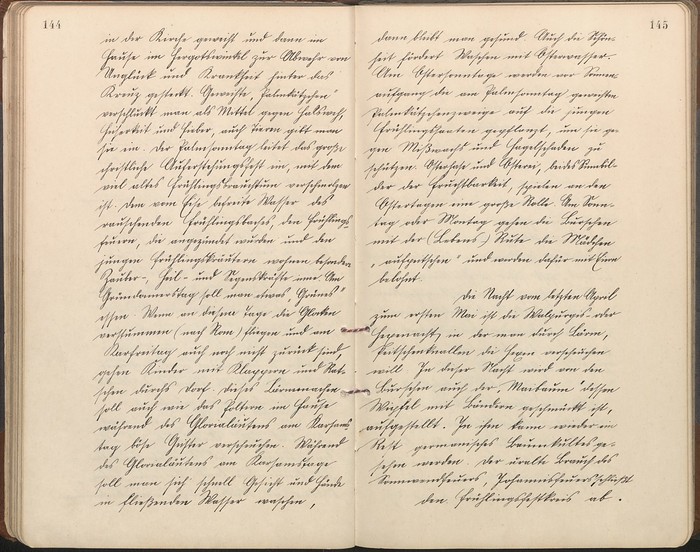 144
in der Kirche geweiht und dann im
Hause im Herrgottswinkel zur Abwehr von
Unglück und Krankheit hinter das
Kreuz gesteckt. Geweihte „Palmkätzchen"
verschluckt man als Mittel gegen Halsweh,
Heiserkeit und Fieber, auch Tieren gibt man
sie ein. Der Palmsonntag leitet das große
christliche Auferstehungsfest ein, mit dem
viel altes Frühlingsbrauchtum verschmolzen
ist. Dem vom Eise befreite Wasser des
rauschenden Frühlingsbaches, den Frühlings-
feuern, die angezündet wurden und den
jungen Frühlingskräutern wohnen besondere
Zauber-, Heil- und Segenskräfte inne. Am
Gründonnerstag soll man etwas „Grünes"
essen. Wenn an diesem Tage die Glocken
verstummen (nach Rom) fliegen und am
Karfreitag auch noch nicht zurück sind,
gehen Kinder mit Klappern und Rat-
schen durchs Dorf. Dieses Lärmmachen
soll auch wie das Poltern im Hause
während des Glorialäutens am Karsams-
tag böse Geister verscheuchen. Während
des Glorialäutens am Karsamstage
soll man sich schnell Gesicht und Hände
in fließenden Wasser waschen,
145
dann bleibt man gesund. Auch die Schön-
heit fördert Waschen mit Osterwasser.
Am Ostersonntage werden vor Sonnen-
aufgang die am Palmsonntag geweihten
Palmkätzchenzweige auf die jungen
Frühlingssaaten gepflanzt, um sie ge-
gen Mißwachs und Hagelschaden zu
schützen. Osterhase und Osterei, beides Sinnbil-
der der Fruchtbarkeit, spielen an den
Ostertagen eine große Rolle. Am Sonn-
tag oder Montag gehen die Burschen
mit der (Lebens-) Rute die Mädchen
„aufpeitschen" und werden dafür mit Eiern
belohnt.
Die Nacht vom letzten April
zum ersten Mai ist die Walpurgis- oder
Hexennacht, in der man durch Lärm,
Peitschenknallen die Hexen verscheuchen
will. In dieser Nacht wird von den
Burschen auch der „Maibaum" dessen
Wipfel mit Bändern geschmückt ist,
aufgestellt. In ihm kann wieder ein
Rest germanisches Baumkultes ge-
sehen werden. Der uralte Brauch des
Sonnwendfeuers, Johannisfeuers schließt
den Frühlingsfestkreis ab.